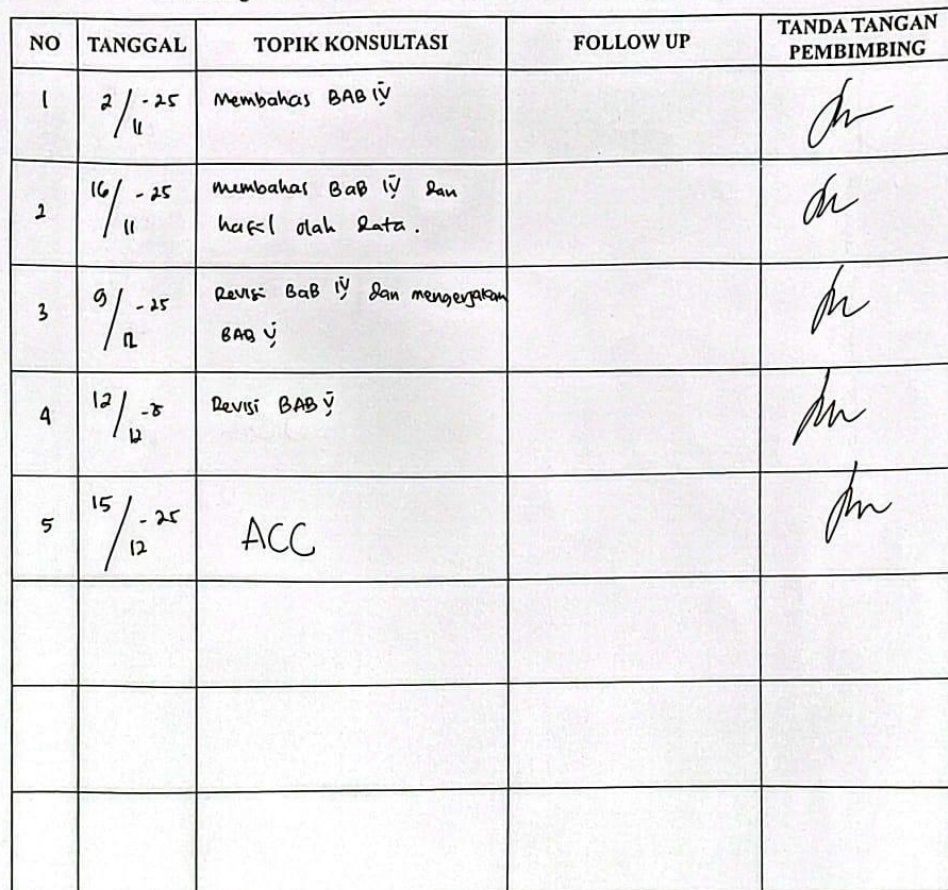 NO TANGGAL TOPIK KONSULTASI FOLLOW UP TANDA TANGAN PEMBIMBING
1 2/11 -25 Membahas BAB IV
2 16/11 -25 membahas BaB IV dan
hasil olah data.
3 9/12 -25 Revisi BaB IV dan mengerjakan
BAB V
4 12/12 Revisi BAB V
5 15/12 -25 ACC